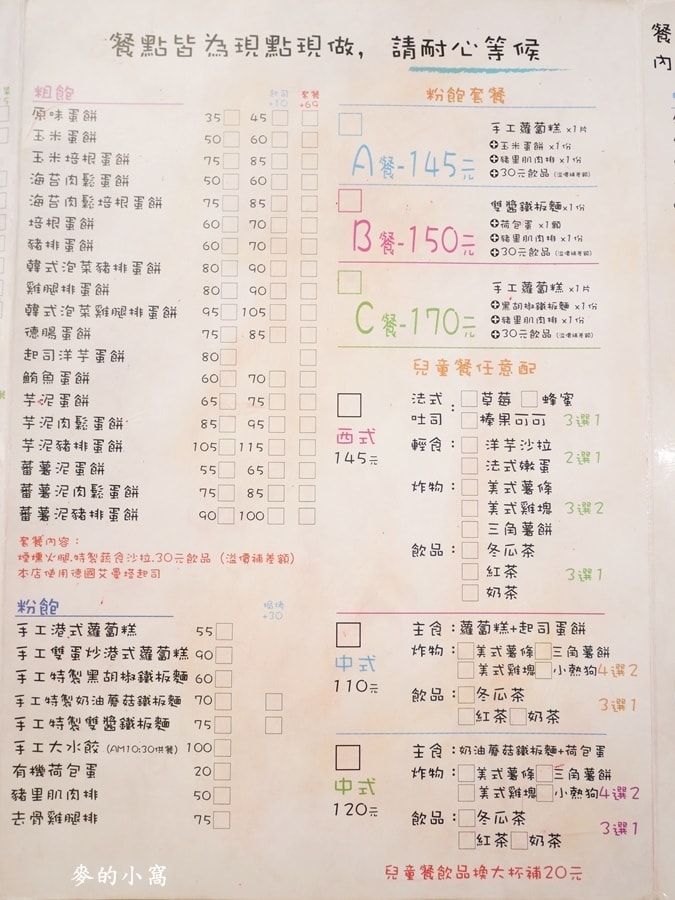 餐點皆為現點現做, 請耐心等候
粗飽 起司+10 套餐+69
原味蛋餅 35 45
玉米蛋餅 50 60
玉米培根蛋餅 75 85
海苔肉鬆蛋餅 50 60
海苔肉鬆培根蛋餅 75 85
培根蛋餅 60 70
豬排蛋餅 60 70
韓式泡菜豬排蛋餅 80 90
雞腿排蛋餅 80 90
韓式泡菜雞腿排蛋餅 95 105
德腸蛋餅 75 85
起司洋芋蛋餅 80
鮪魚蛋餅 60 70
芋泥蛋餅 65 75
芋泥肉鬆蛋餅 85 95
芋泥豬排蛋餅 105 115
蕃薯泥蛋餅 55 65
蕃薯泥肉鬆蛋餅 75 85
蕃薯泥豬排蛋餅 90 100
套餐內容：
煙燻火腿.特製蔬食沙拉.30元飲品（溢價補差額）
本店使用德國艾曼塔起司
粉飽 +30
手工港式蘿蔔糕 55
手工雙蛋炒港式蘿蔔糕 90
手工特製黑胡椒鐵板麵 60
手工特製奶油蘑菇鐵板麵 70
手工特製雙醬鐵板麵 75
手工大水餃 (AM10:30供餐) 100
有機荷包蛋 20
豬里肌肉排 50
去骨雞腿排 75
粉飽套餐
A餐-145元
手工蘿蔔糕 x1片
+玉米蛋餅 x1份
+豬里肌肉排 x1份
+30元飲品 (溢價補差額)
B餐-150元
雙醬鐵板麵 x1份
+荷包蛋 x1顆
+豬里肌肉排 x1份
+30元飲品 (溢價補差額)
C餐-170元
手工蘿蔔糕 x1片
+黑胡椒鐵板麵 x1份
+豬里肌肉排 x1份
+30元飲品 (溢價補差額)
兒童餐任意配
西式
145元
法式吐司：草莓 蜂蜜
榛果可可 3選1
輕食：洋芋沙拉
法式嫩蛋 2選1
炸物：美式薯條
美式雞塊 3選2
三角薯餅
飲品：冬瓜茶
紅茶 3選1
奶茶
中式
110元
主食：蘿蔔糕+起司蛋餅
炸物：美式薯條 三角薯餅
美式雞塊 小熱狗 4選2
飲品：冬瓜茶 3選1
紅茶 奶茶
中式
120元
主食：奶油蘑菇鐵板麵+荷包蛋
炸物：美式薯條 三角薯餅
美式雞塊 小熱狗 4選2
飲品：冬瓜茶 3選1
紅茶 奶茶
兒童餐飲品換大杯補20元
餐
內
麥的小窩